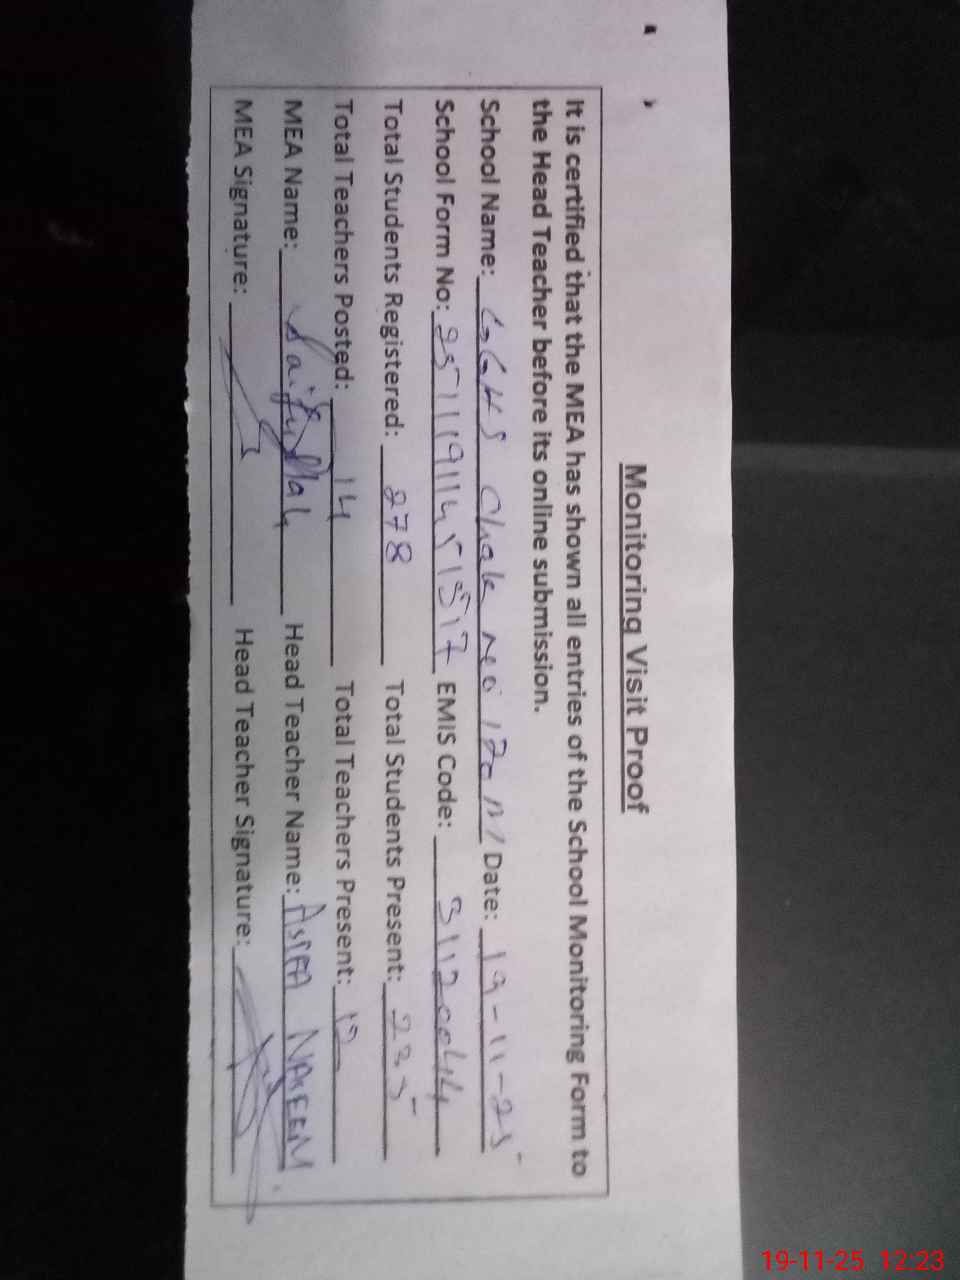 Monitoring Visit Proof
It is certified that the MEA has shown all entries of the School Monitoring Form to
the Head Teacher before its online submission.
School Name: GGHS Chak no 170 M/ Date: 19-11-25
School Form No: EMIS Code: 31120044
Total Students Registered: 278 Total Students Present: 235
Total Teachers Posted: 14 Total Teachers Present: 12
MEA Name: Saifullah Head Teacher Name: NAHEEM
MEA Signature: Head Teacher Signature:
19-11-25 12:23